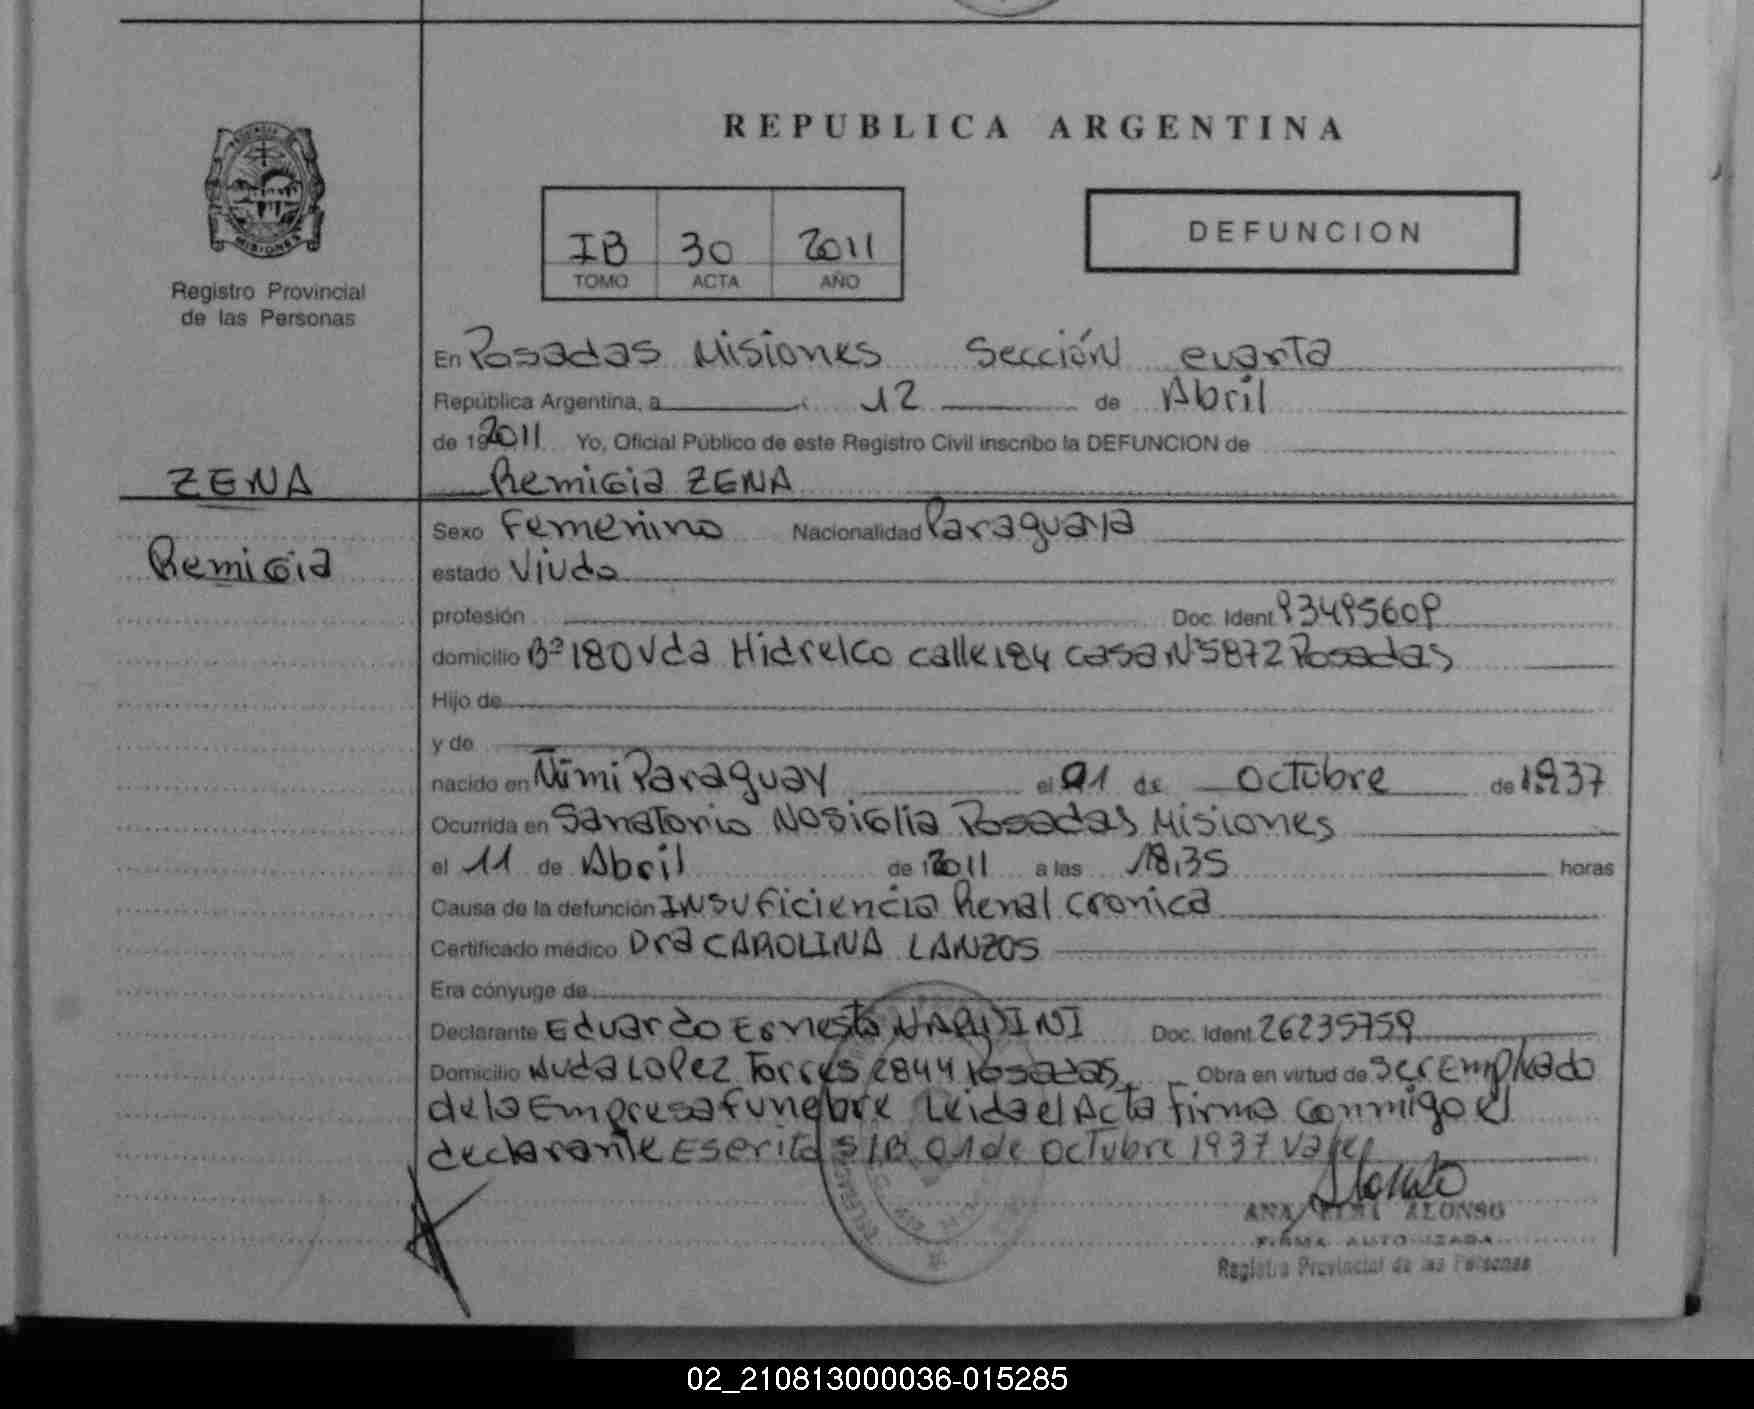 REPUBLICA ARGENTINA
MISIONES
Registro Provincial
de las Personas
IB 30 2011
TOMO ACTA AÑO
DEFUNCION
En Posadas Misiones Sección cuarta
República Argentina, a 12 de Abril
de 19 2011 Yo, Oficial Público de este Registro Civil inscribo la DEFUNCION de
ZENA
Remigia ZENA
Remigia
Sexo Femenino Nacionalidad Paraguaya
estado Viuda
profesión Doc. Ident. 93495609
domicilio Bº 180 Vda Hidrelco calle 184 casa Nº 5872 Posadas
Hijo de
y de
nacido en Ñumi Paraguay el 01 de octubre de 1937
Ocurrida en Sanatorio Nosiglia Posadas Misiones
el 11 de Abril de 2011 a las 18,35 horas
Causa de la defunción Insuficiencia Renal cronica
Certificado médico Dra CAROLINA LANZOS
Era cónyuge de
Declarante Eduardo Ernesto Doc. Ident. 26235759
Domicilio Avda Lopez Torres 2844 Posadas Obra en virtud de ser Empleado
de la Empresa funebre Leida el Acta firma conmigo el
declarante Escrito S/B 01 de octubre 1937 Vale
ANA ALONSO
FIRMA AUTORIZADA
Registro Provincial de las Personas
02_210813000036-015285